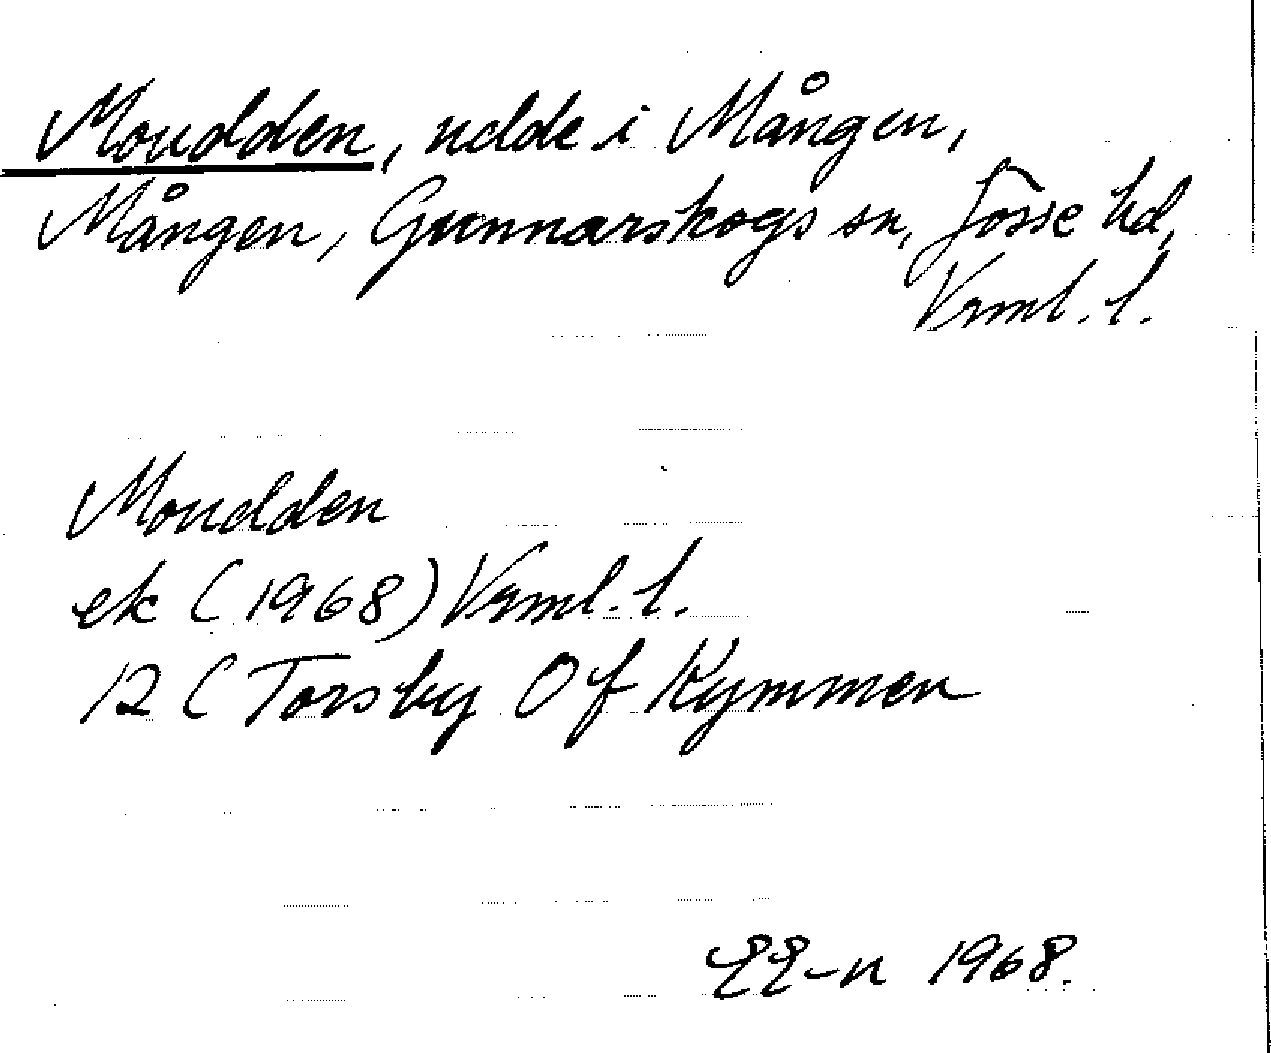 Moudden, udde i Mången,
Mången, Gunnarskogs sn, Jösse hd,
Vrml. l.
Moudden
ek (1968) Vrml. l.
12 C Torsby 0 f Kymmen
EE-n 1968.